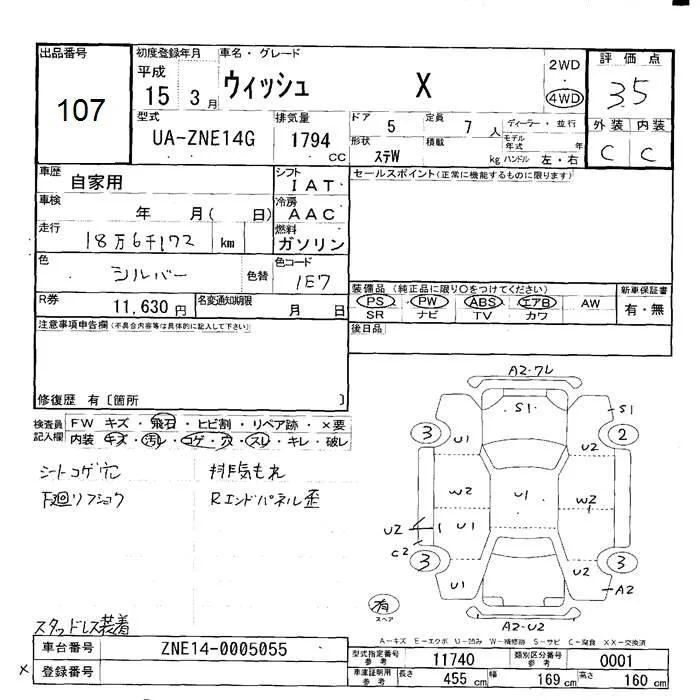 出品番号
107
初度登録年月
平成
15 3月
車名・グレード
ウィッシュ X
2WD
4WD
評価点
3.5
型式
UA-ZNE14G
排気量
1794
CC
ドア 5
定員 7 人
ディーラー・並行
形状 ステW
積載 kg
モデル年式 年
ハンドル 左・右
外装 内装
C C
車歴 自家用
シフト IAT
セールスポイント(正常に機能するものに限ります)
車検 年 月( 日)
冷房 AAC
走行 18万6千172 km
燃料 ガソリン
色 シルバー 色替
色コード 1E7
装備品(純正品に限り○をつけてください)
新車保証書
PS PW ABS エアB AW
有・無
SR ナビ TV カワ
R券 11,630円
名変通知期限 月 日
後日品
注意事項申告欄(不具合内容等は具体的に記入して下さい)
修復歴 有〔箇所 〕
検査員記入欄
FW キズ・飛石・ヒビ割・リペア跡・×要
内装 キズ・汚レ・コゲ・穴・スレ・キレ・破レ
シートコゲ穴 排気もれ
下廻リフショウ Rエンドパネル歪
スタッドレス装着
A2-ワレ
S1 S1
3 2
U1 U2
W2 U1 W2
U2 U1
C2
3 3
U2
U1 A2
有
スペア
A2-U2
A-キズ E-エクボ U-凹み W-補修跡 S-サビ C-腐食 XX-交換済
車台番号 ZNE14-0005055
型式指定番号 参考 11740
類別区分番号 参考 0001
× 登録番号
車庫証明用 参考
長さ 455 cm 幅 169 cm 高さ 160 cm